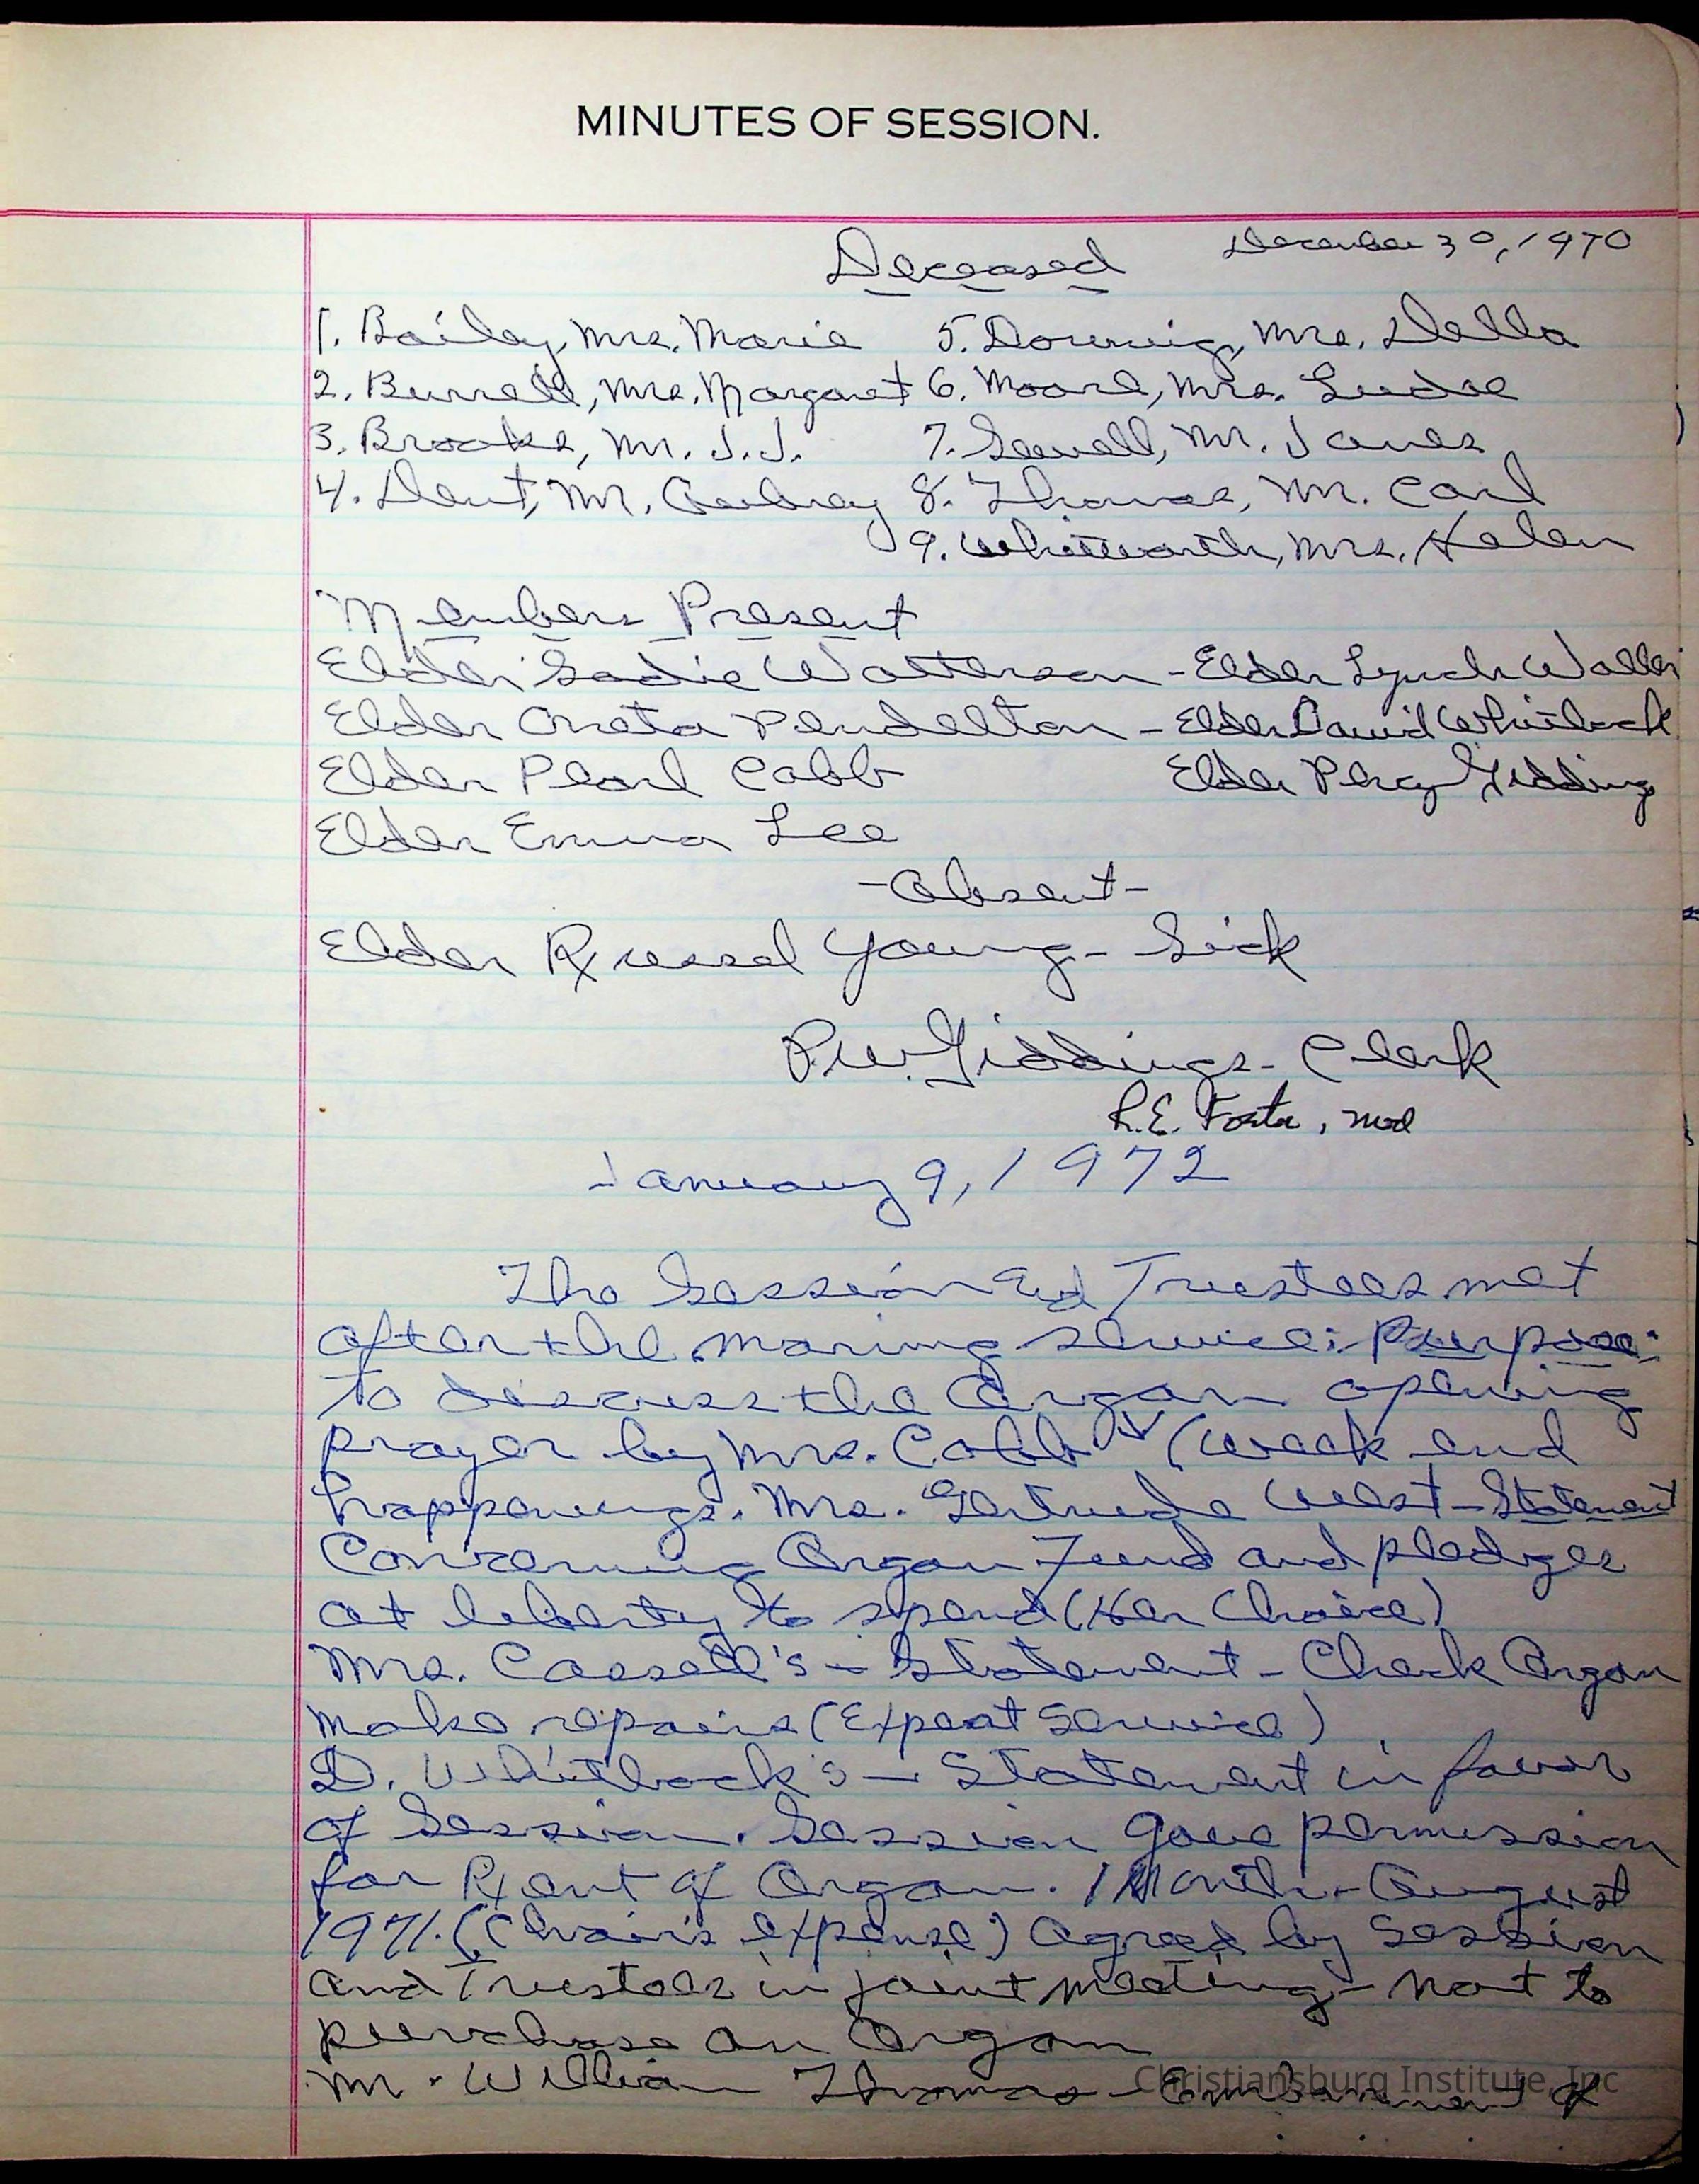 MINUTES OF SESSION.
December 30, 1970
Deceased
1. Bailey, Mrs. Marie 5. Downing, Mrs. Della
2. Burrell, Mrs. Margaret 6. Moore, Mrs. Ludie
3. Brooks, Mr. J.J. 7. Sewell, Mr. James
4. Dent, Mr. Aubrey 8. Thomas, Mr. Carl
9. Whitworth, Mrs. Helen
Members Present
Elder Sadie Watterson - Elder Lynch Waller
Elder Oneta Pendelton - Elder David Whitlock
Elder Pearl Cobb Elder Percy Giddings
Elder Emma Lee
- Absent -
Elder Russel Young - Sick
P.W. Giddings - Clerk
R.E. Foster, Mod
January 9, 1972
The Session and Trustees met
after the morning service: Purpose:
to discuss the Organ opening
prayer by Mrs. Cobb (week end
happenings. Mrs. Gertrude West - Statement
Concerning Organ Fund and pledges
at liberty to spend (Her Choice)
Mrs. Cassell's - Statement - Check Organ
make repairs (Expeat Service)
D. Whitlock's - Statement in favor
of Session. Session gave permission
for Rent of Organ. 1 Month - August
1971. (Choir's expense) agreed by Session
and Trustees in joint meeting - not to
purchase an Organ
Mr. William Thomas - of
Christiansburg Institute, Inc